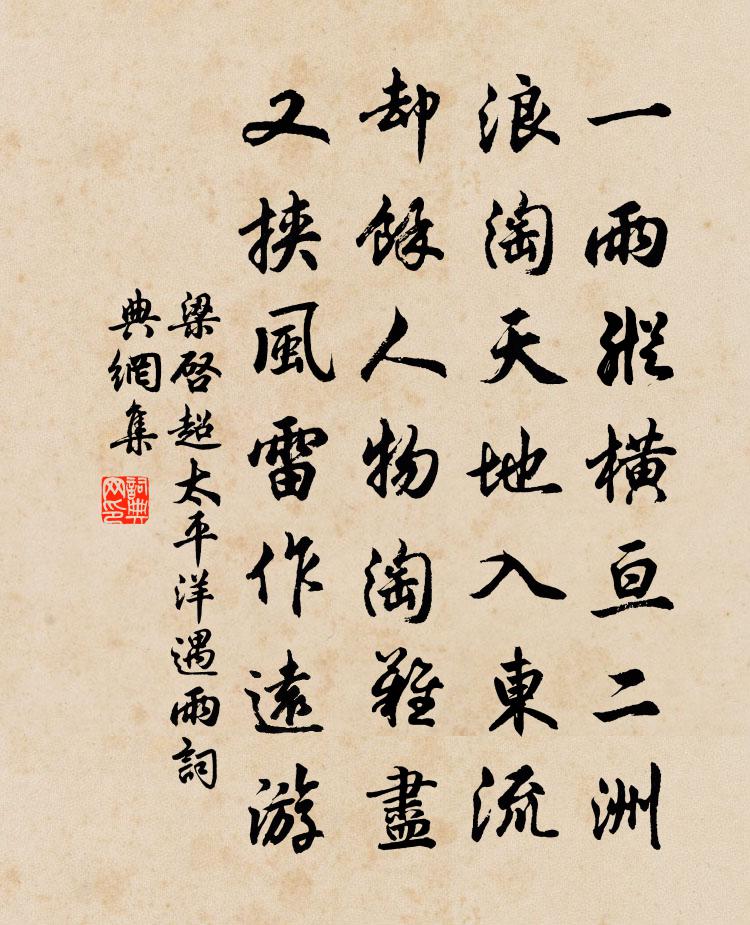 一雨縱橫亘二洲
浪淘天地入東流
却餘人物淘難盡
又挾風雷作遠游
梁啓超太平洋遇雨詞
典網集
詞典網印